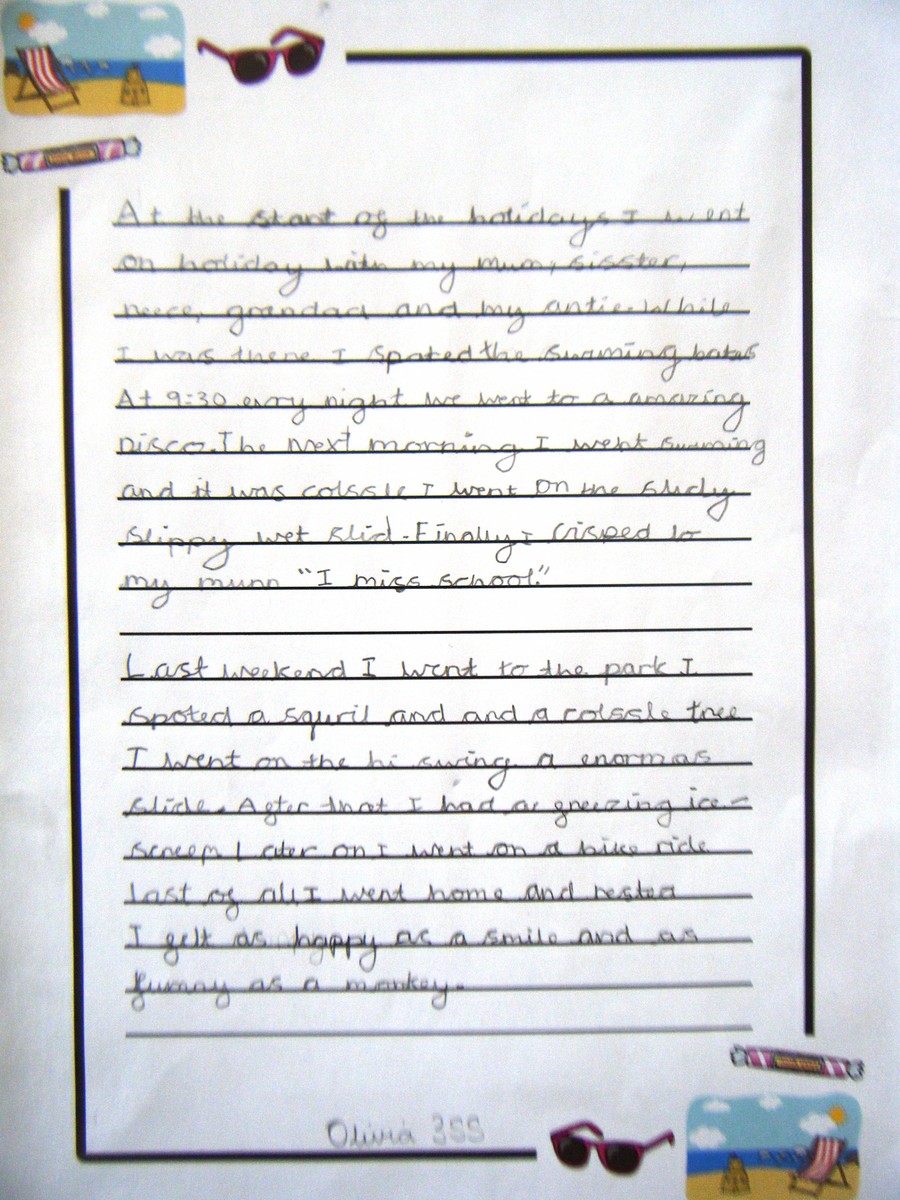 At the start of the holidays I went
on holiday with my mum, sisster,
neece, grandad and my antie. While
I was there I spated the swming bates
At 9:30 evry night we went to a amazing
Disco. The next morning I went swming
and it was colssle I went on the sludy
slippy wet slid. Finally I crisped to
my mum "I miss school."
Last weekend I went to the park I
spoted a squril and and a colssle tree
I went on the hi swing a enormas
slide. After that I had a freezing ice-
screem Later on I went on a bike ride
Last of all, I went home and rested
I felt as happy as a smile and as
funny as a monkey.
Olivia 3SS